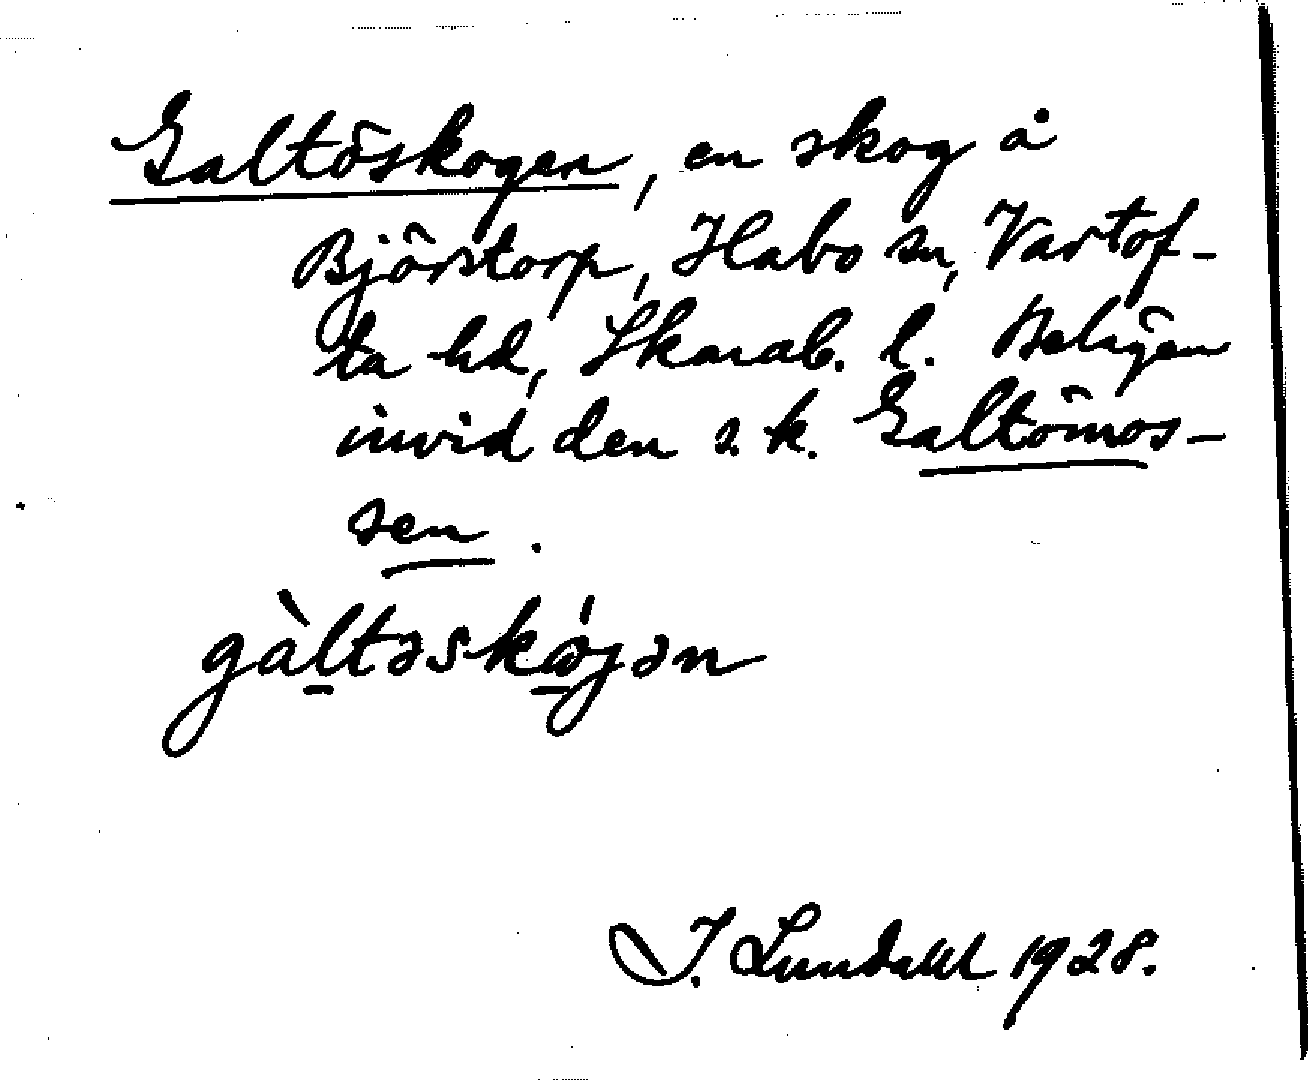 Galtöskogen, en skog å
Björstorp, Habo sn, Vartof-
ta hd, Skarab. l. Belägen
invid den s.k. Galtömos-
sen.
gàltəskǿgən
I. Lundahl 1928.